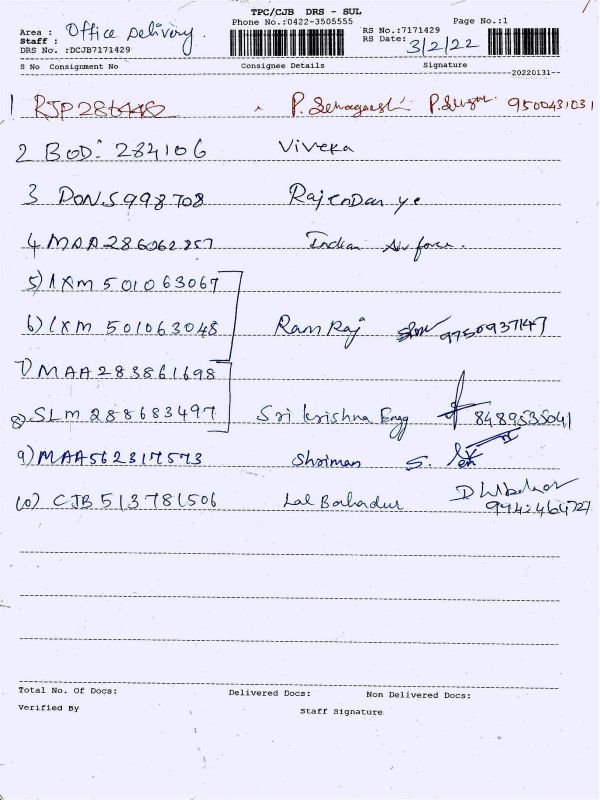 TPC/CJB DRS - SUL
Phone No.:0422-3505555 Page No.:1
Area : Office Delivery. RS No.:7171429
Staff : RS Date: 3/2/22
DRS No. :DCJB7171429
S No Consignment No Consignee Details Signature
--20220131--
1 RJP286448 P. 9500431031
2 BOD: 284106 Viveka
3 DON5998708 Rajendan ye
4 MAA286062857 Indian Air force.
5) IXM 501063067
6) IXM 501063048 Ram Raj 9750937147
7) MAA283861698
8) SLM 288683497 Sri krishna Engg 8489535041
9) MAA562317573 Shriman S.
10) CJB 513781506 Lal Bahadur
Total No. Of Docs: Delivered Docs: Non Delivered Docs:
Verified By Staff Signature